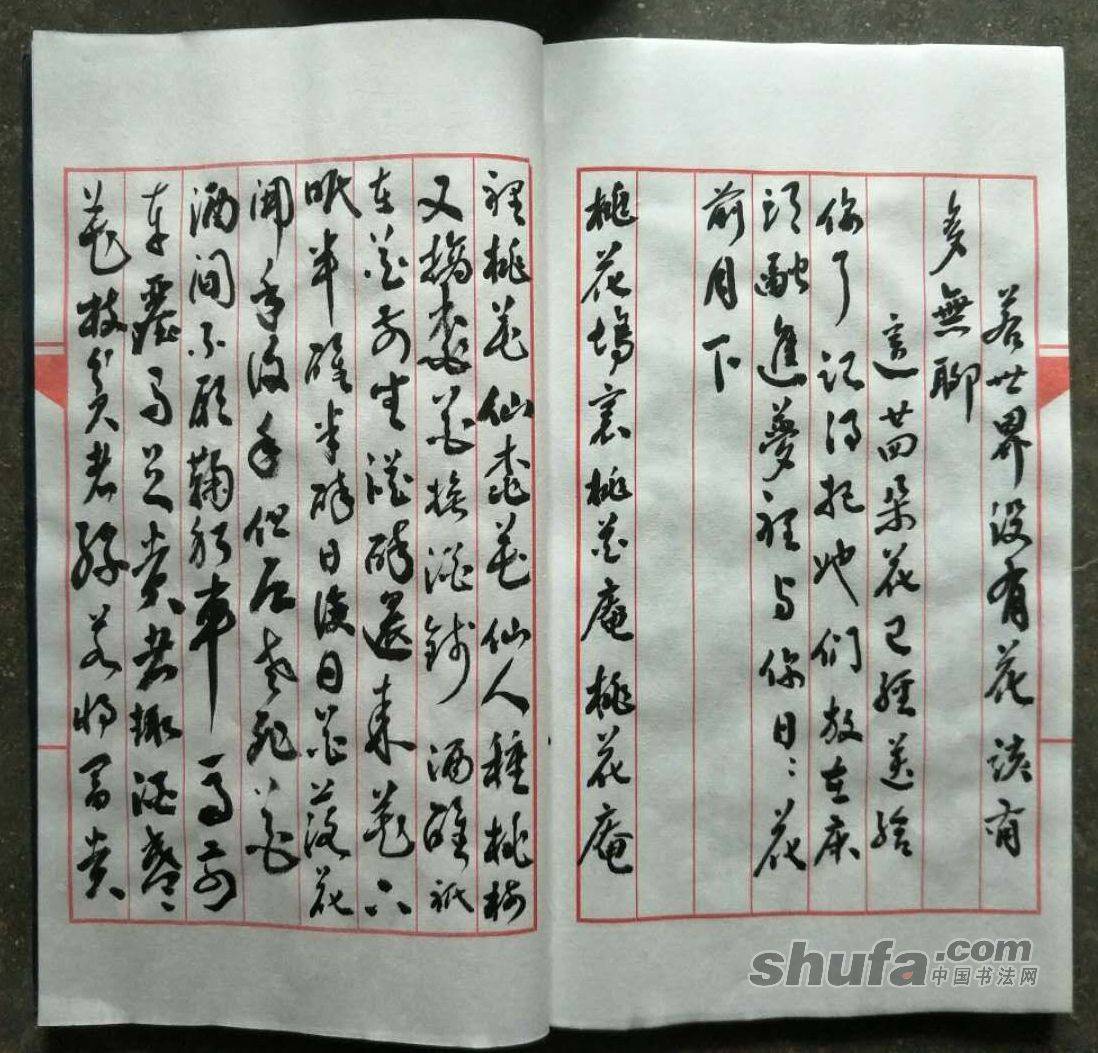 若世界没有花該有
多無聊
這廿四朵花已經送給
你了記得把她们放在床
頭融進夢裡与你日：花
前月下
桃花塢裏桃花庵桃花庵
裡桃花仙桃花仙人種桃樹
又摘桃花換酒錢酒醒祇
在花前坐酒醉還来花下
眠半醒半醉日復日花落花
開年復年但愿老死花
酒間不願鞠躬車馬前
車塵馬足貴者趣酒盞
花枝貧者緣若將富貴
shufa.com
中国书法网